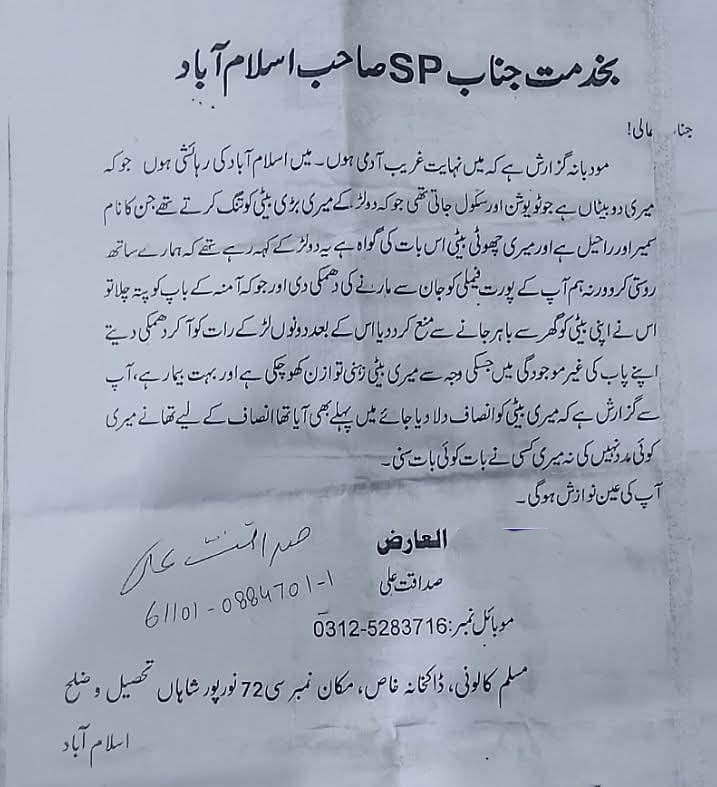 بخدمت جناب SP صاحب اسلام آباد
جنا عالی!
مودبانہ گزارش ہے کہ میں نہایت غریب آدمی ہوں۔ میں اسلام آباد کی رہائشی ہوں جو کہ
میری دو بیٹاں ہے جو ٹویوشن اور سکول جاتی تھی جو کہ دو لڑکے میری بڑی بیٹی کو تنگ کرتے تھے جن کا نام
سمیر اور راحیل ہے اور میری چھوٹی بیٹی اس بات کی گواہ ہے یہ دو لڑکے کہہ رہے تھے کہ ہمارے ساتھ
روستی کرو ورنہ ہم آپ کے پورت فیملی کو جان سے مارنے کی دھمکی دی اور جو کہ آمنہ کے باپ کو پتہ چلا تو
اس نے اپنی بیٹی کو گھر سے باہر جانے سے منع کر ددیا اس کے بعد دونوں لڑکے رات کو آ کر دھمکی دیتے
اپنے پاب کی غیر موجودگی میں جسکی وجہ سے میری بیٹی زہنی توازن کھو چکی ہے اور بہت بیمار ہے، آپ
سے گزارش ہے کہ میری بیٹی کو انصاف دلا دیا جائے میں پہلے بھی آیا تھا انصاف کے لیے تھانے میری
کوئی مدد نہیں کی نہ میری کسی نے بات کوئی بات سنی۔
آپ کی عین نوازش ہوگی۔
العارض
صداقت علی
صداقت علی
61101-0884701-1
موبائل نمبر: 0312-5283716
مسلم کالونی، ڈاکخانہ خاص، مکان نمبر سی 72 نور پور شاہاں تحصیل و ضلح
اسلام آباد